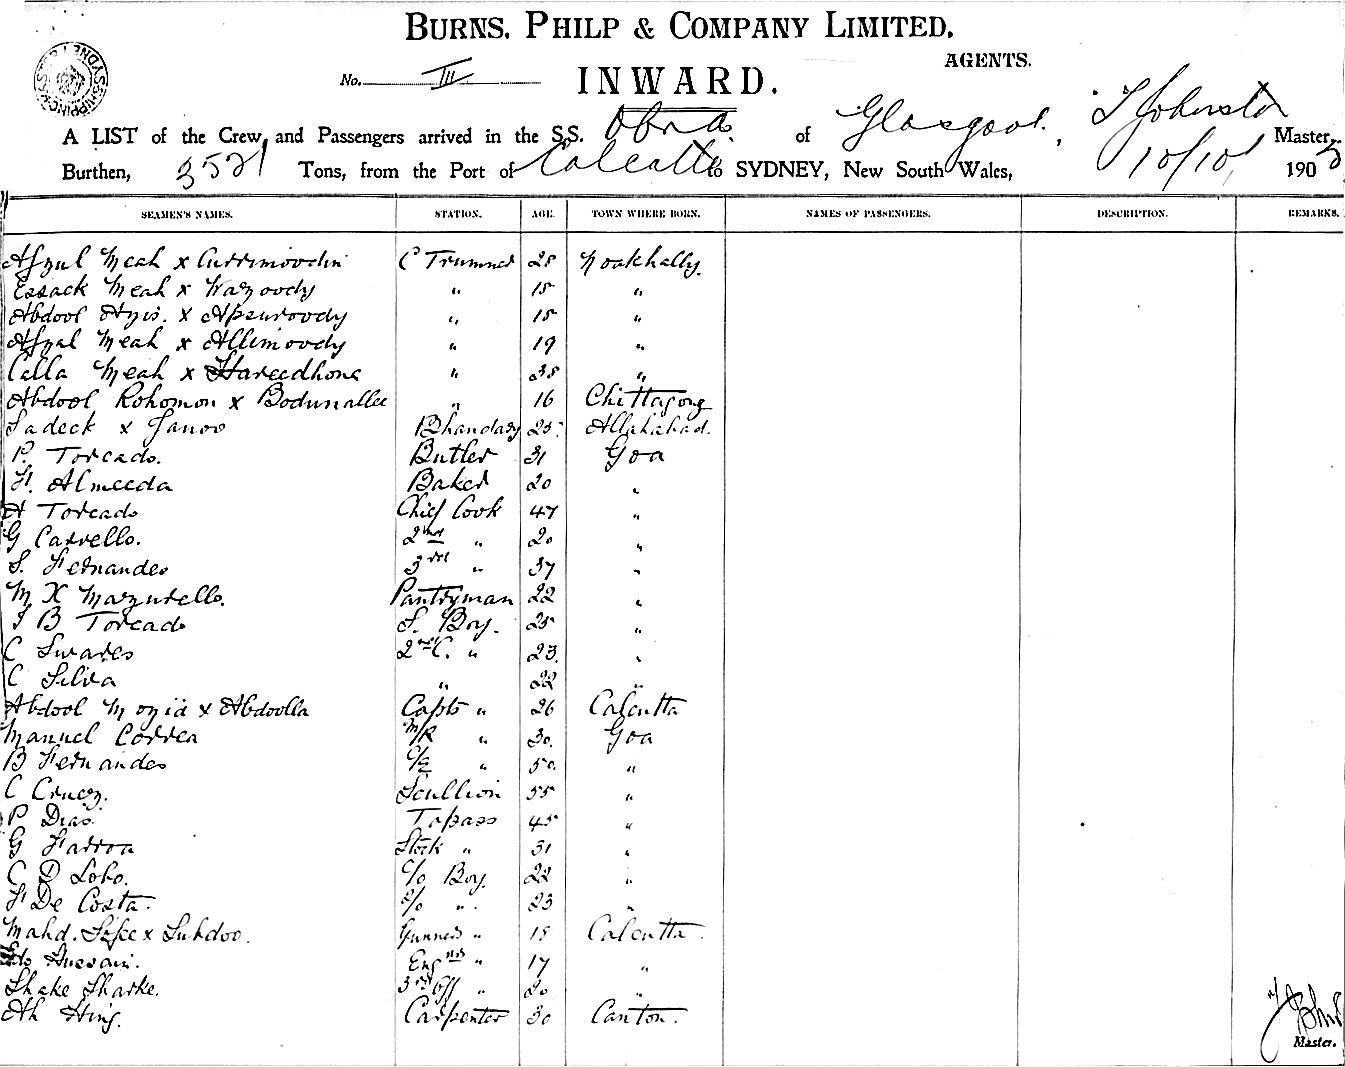 BURNS, PHILP & COMPANY LIMITED.
AGENTS.
No. III INWARD.
A LIST of the Crew and Passengers arrived in the S.S. Obra of Glasgow, J Johnston Master,
Burthen, 3521 Tons, from the Port of Calcutta to SYDNEY, New South Wales, 10/10/ 190
SEAMEN'S NAMES. STATION. AGE. TOWN WHERE BORN. NAMES OF PASSENGERS. DESCRIPTION. REMARKS.
Afzul Meah x Currimoodin C Trummer 28 Noakhally.
Essack Meah x Wazoody " 18 "
Abdool Azis. x Apsuroody " 18 "
Afzal Meah x Allimoody " 19 "
Calla Meah x " 38 "
Abdool Rohomon x Bodunallee " 16 Chittagong
Sadeck x Janoo Bhandary 25 Allahabad.
P. Torcado. Butler 31 Goa
F. Almeeda Baker 20 "
A Torcado Chief Cook 47 "
G Carvello. 2nd " 20 "
S. Fernandes 3rd " 37 "
M X Mazurello. Pantryman 22 "
J B Torcado S. Boy. 25 "
C Swares 2nd C. " 23. "
C Silva " 22 "
Abdool Mozid x Abdoolla Capts " 26 Calcutta
Manuel Correa M/R " 30. Goa
B Fernandes C/E " 50 "
C Cruez. Scullion 55 "
P Dias. Topass 45 "
G Farroa " 31 "
C D Lobo. C/o Boy. 22 "
F De Costa. 2/o " 23 "
Mahd. x Sukdoo. Gunners " 18 Calcutta.
Hussain. Engnrs " 17 "
Shake Sharke. 3rd Off " 20 "
Ah Hing. Carpenter 30 Canton.
Master.